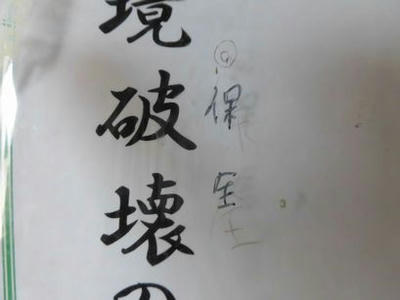 保全
境破壊の